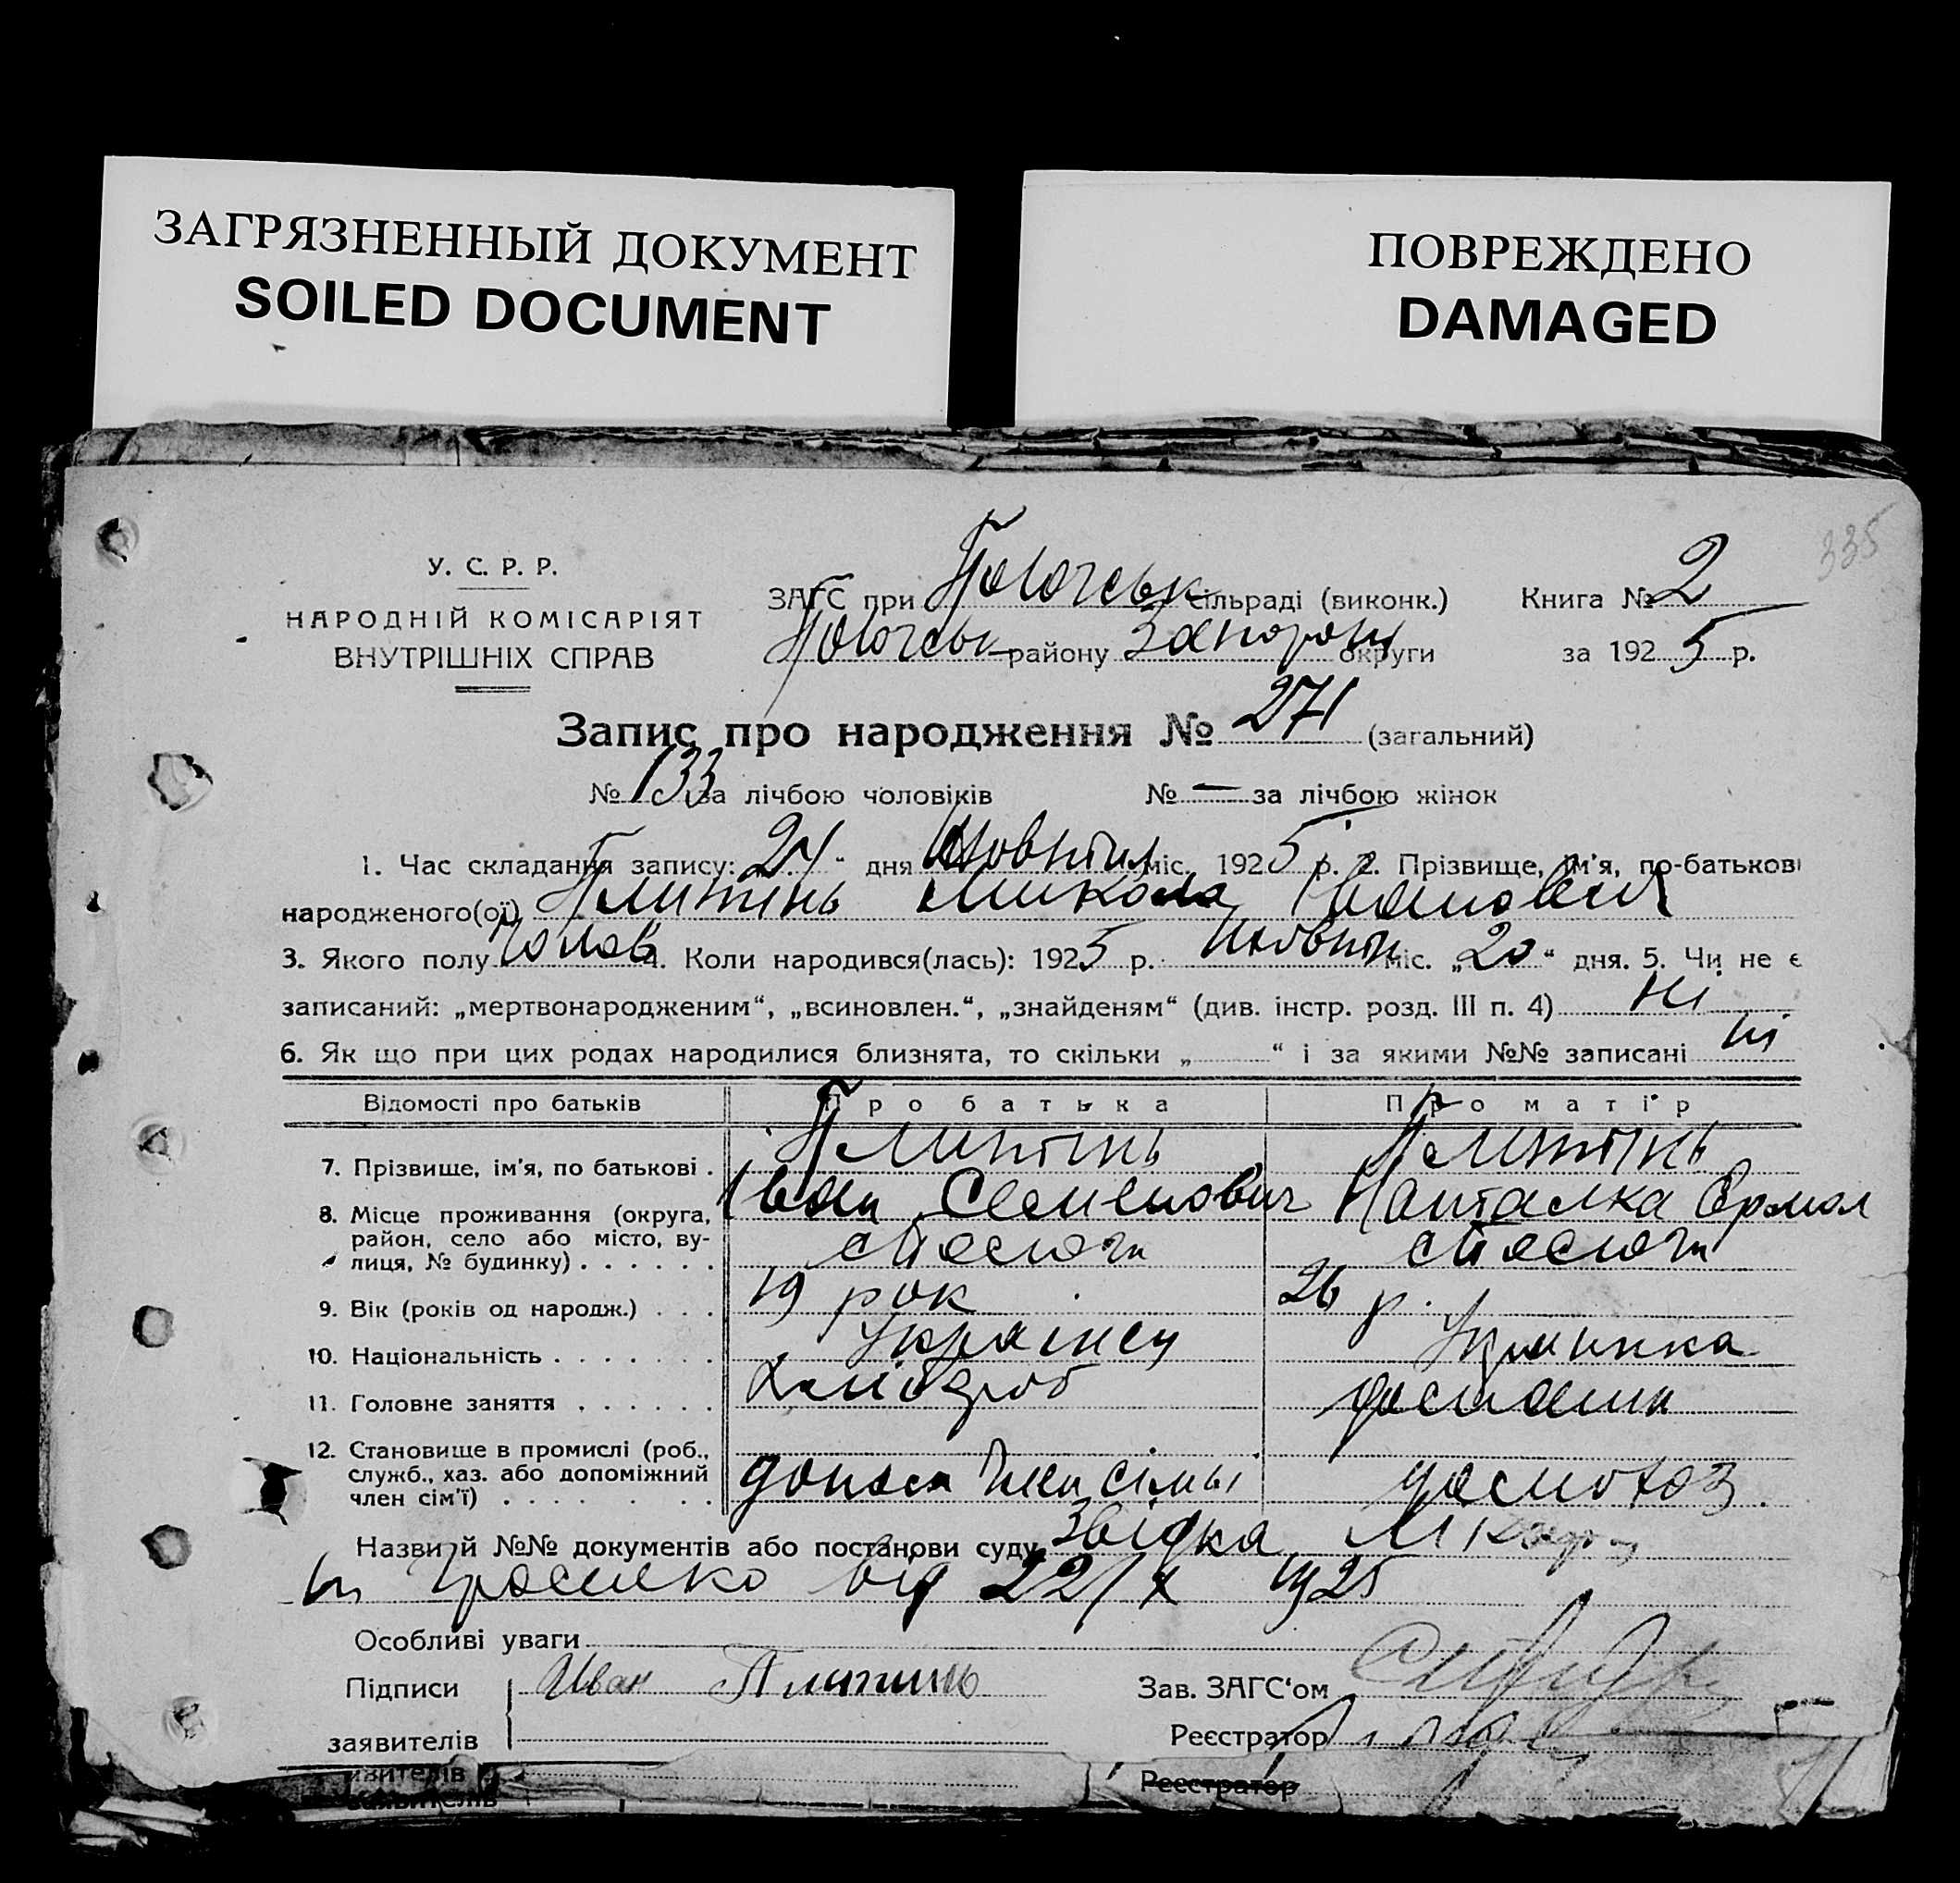 ЗАГРЯЗНЕННЫЙ ДОКУМЕНТ
SOILED DOCUMENT
ПОВРЕЖДЕНО
DAMAGED
335
У. С. Р. Р.
НАРОДНІЙ КОМІСАРІЯТ
ВНУТРІШНІХ СПРАВ
ЗАГС при сільраді (виконк.)
району Запорізь округи
Книга № 2
за 1925 р.
Запис про народження № 271 (загальний)
№ 133 за лічбою чоловіків № — за лічбою жінок
1. Час складання запису: „24“ дня Жовтня міс. 1925 р. 2. Прізвище, ім'я, по-батькові
народженого(ої) Плитінь Микола Іванович
3. Якого полу Чолов 4. Коли народився(лась): 1925 р. жовтн міс. „20“ дня. 5. Чи не є
записаний: „мертвонародженим“, „всиновлен.“, „знайденям“ (див. інстр. розд. III п. 4) ні
6. Як що при цих родах народилися близнята, то скільки „ “ і за якими №№ записані ні
Відомості про батьків Про батька Про матір
7. Прізвище, ім'я, по батькові . Плитінь Плитінь
Іван Семенович Наталка Ермол
8. Місце проживання (округа, район, село або місто, вулиця, № будинку) . . . . . .
9. Вік (років од народж.) . . . 19 рок 26 р.
10. Національність . . . . . . . Українец Українка
11. Головне заняття . . . . . . Хлібороб домашн
12. Становище в промислі (роб., служб., хаз. або допоміжний член сім'ї) . . . . . . . допом член сімьі
Назви й №№ документів або постанови суду Звідка
від 22/X 1925
Особливі уваги
Підписи Иван Плитинь
заявителів
Зав. ЗАГС'ом
Реєстратор
заявителів
Реєстратор